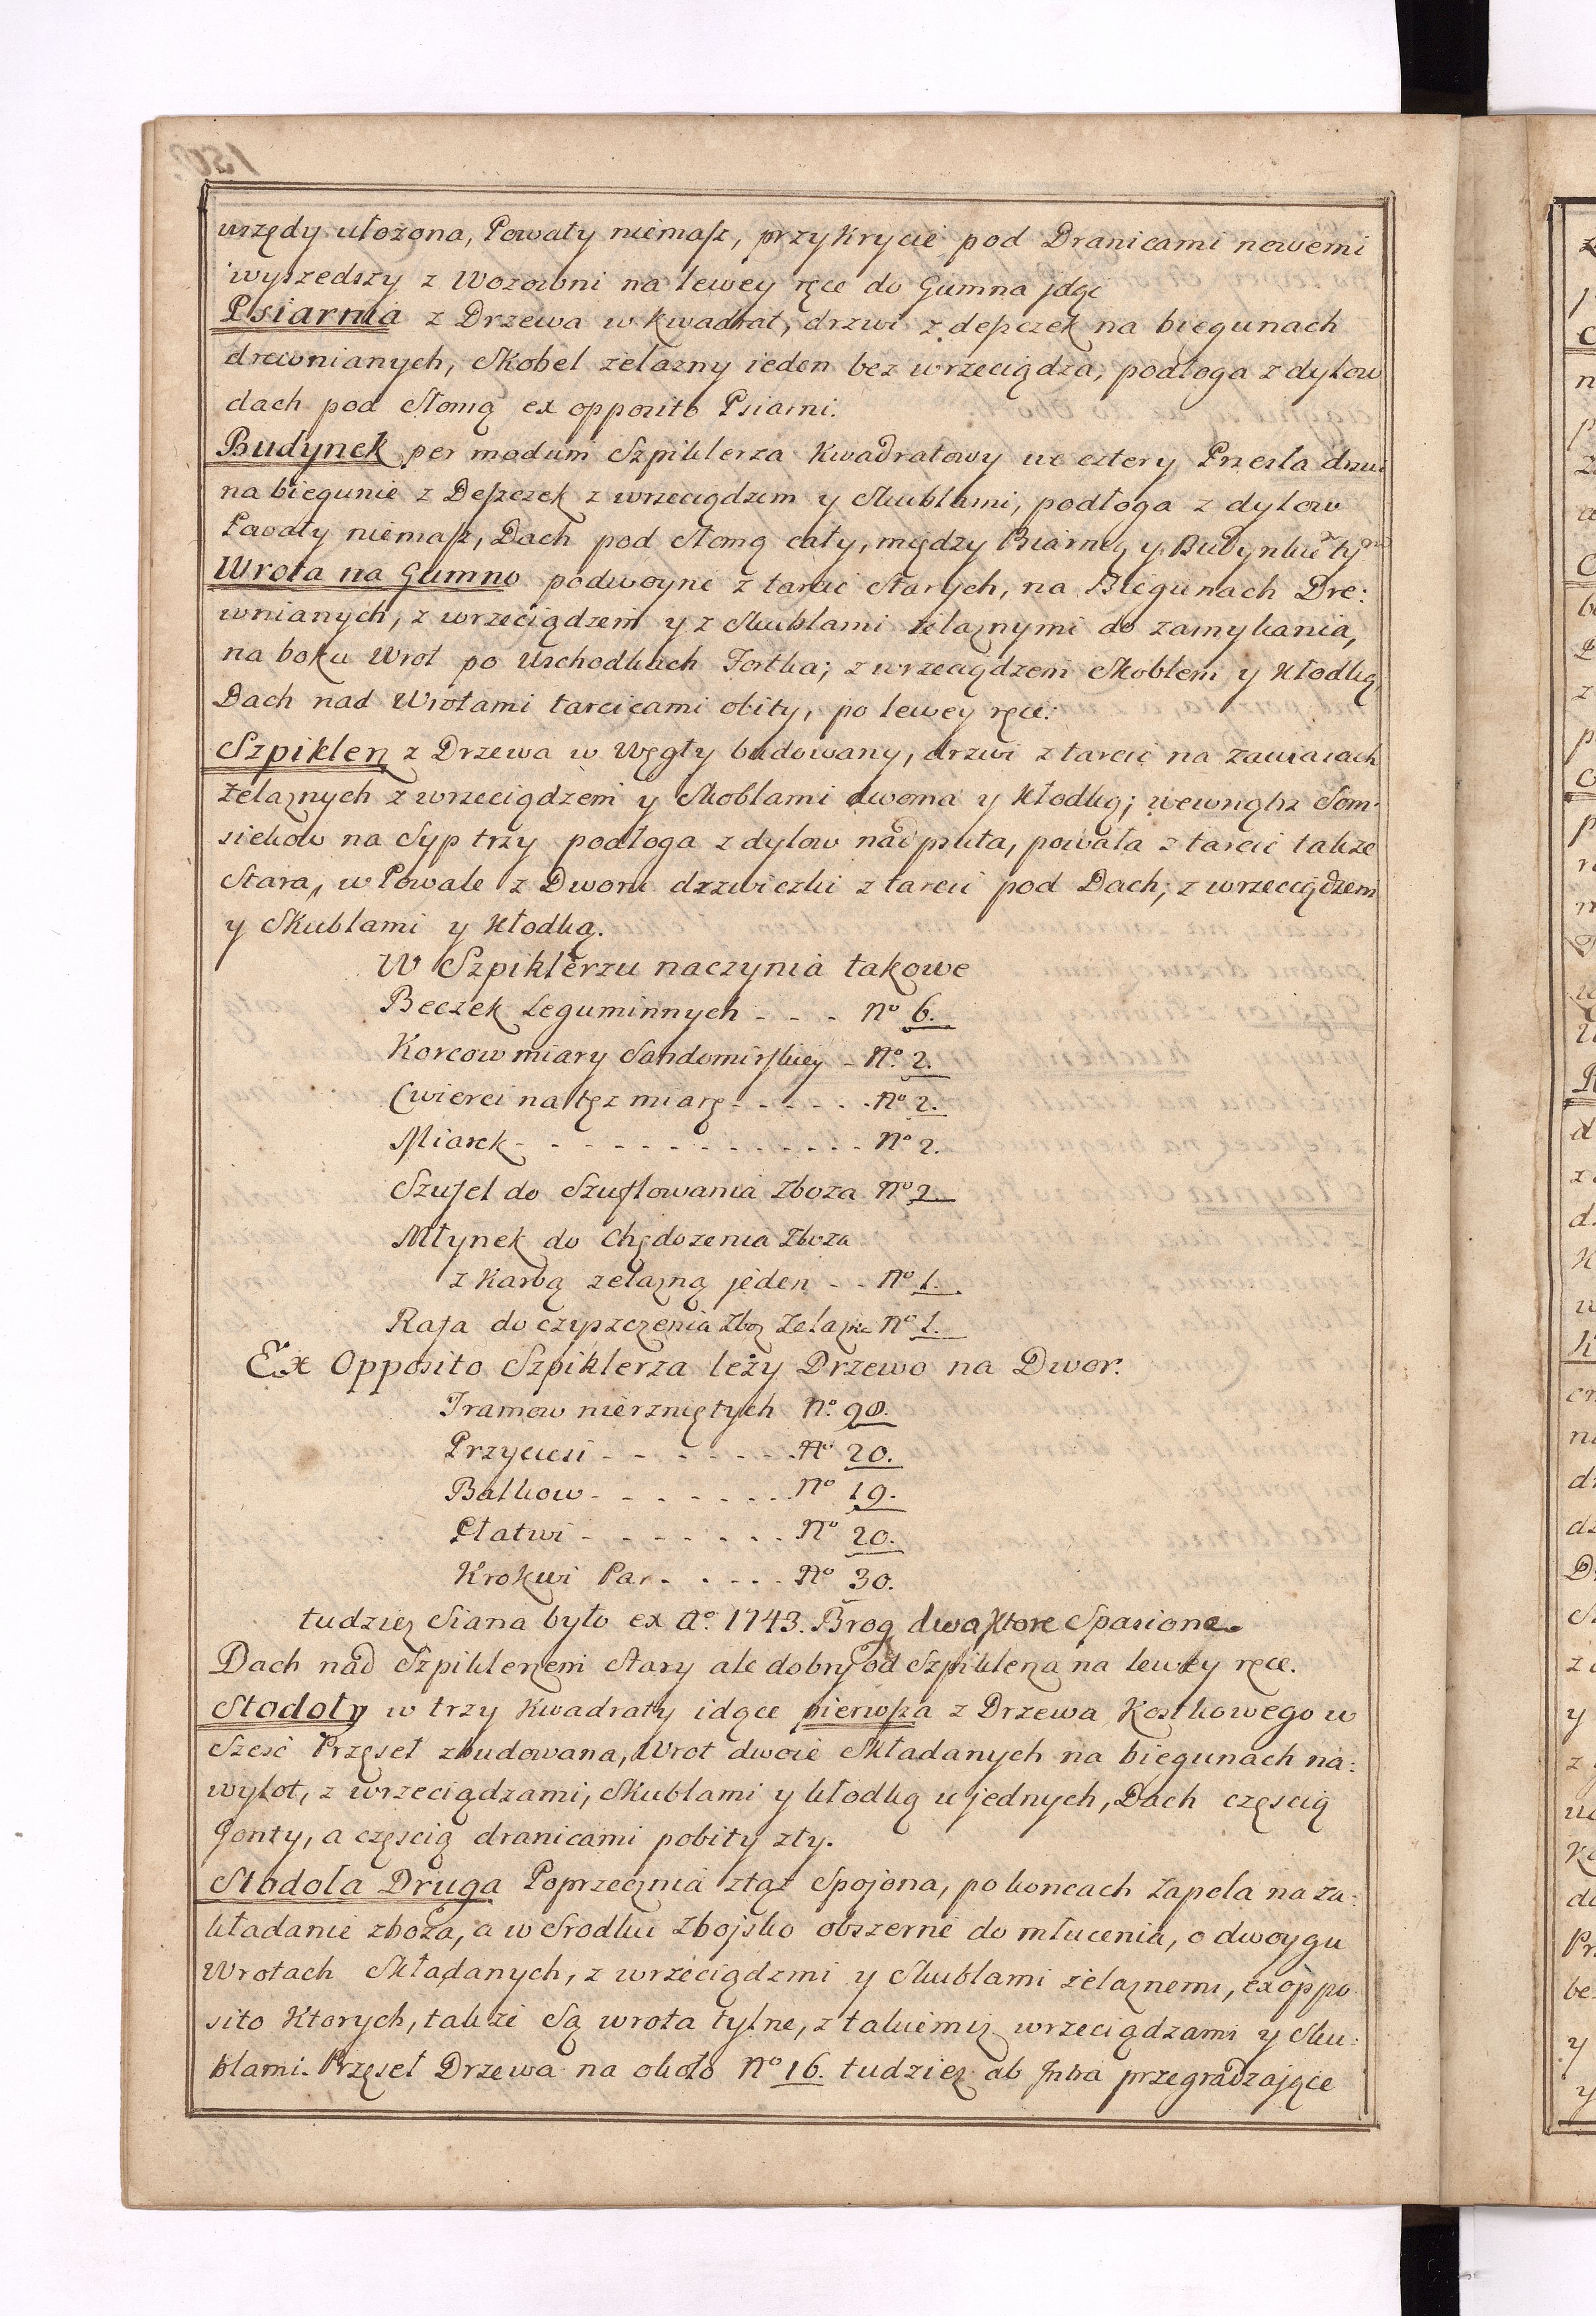 wszędy ułożona, Powały niemasz, przykrycie pod Dranicami nowemi
wyszedszy z Wozowni na lewey ręce do Gumna jdąc
Psiarnia z Drzewa w kwadrat, drzwi z depczek na biegunach
drewnianych, Skobel zelazny ieden bez wrzeciądza, podłoga z dylow
dach pod Słomą ex opposito Psiarni.
Budynek per modum Szpiklerza Kwadratowy we cztery Przesła drzwi
na biegunie z Depczek z wrzeciądzem y Skublami, podłoga z dylow
Powały niemasz, Dach pod Słomą cały, między Psiarnią y Budynku
Wrota na Gumno podwoyne z tarcic Starych, na Biegunach Dre:
wnianych, z wrzeciądzem y z Skublami żelaznymi do zamykania,
na boku Wrot po Uschodkach Fortka; z wrzeciądzem Skoblem y Kłodką,
Dach nad Wrotami tarcicami obity, po lewey ręce:
Szpiklerz z Drzewa w Węgły budowany, drzwi z tarcic na zawiasach
żelaznych z wrzeciądzem y Skoblami dwoma y Kłodką; wewnątrz Som:
siekow na Syp trzy podłoga z dylow nadpsuta, powała z tarcic takze
Stara, w Powale z Dworu drzwiczki z tarcic pod Dach, z wrzeciądzem
y Skublami y Kłodką.
W Szpiklerzu naczynia takowe
Beczek Leguminnych - - - No 6.
Korcow miary Sandomirskiey - No. 2.
Cwierci na tęz miarę - - - - - - No 2.
Miarek - - - - - - - - - - - - - No 2.
Szufel do Szuflowania Zboza No 2
Młynek do Chędozenia Zboza
z Karbą zelazną jeden - - No 1.
Rafa do czyszczenia Zboz Zelazna No 1.
Ex Opposito Szpiklerza leży Drzewo na Dwor:
Tramow nierzniętych No. 90.
Przyciesi - - - - - - - No 20.
Balkow - - - - - - - - No 19.
Płatwi - - - - - - - - No 20.
Krokwi Par - - - - - No 30.
tudziez Siana było ex Ao. 1743. Brog dwa Ktore Spasione.
Dach nad Szpiklerzem Stary ale dobry od Szpiklerza na lewey ręce.
Stodoły w trzy Kwadraty idące pierwsza z Drzewa Kostkowego w
Szesc Przęseł zbudowana, Wrot dwoie Składanych na biegunach na:
wylot, z wrzeciądzami, Skublami y kłodką u jednych, Dach częscią
Gonty, a częscią dranicami pobity zły.
Stodoła Druga Poprzecznia ztąz Spojona, po koncach Zapola na za:
kładanie zboża, a w Srodku Zbojsko obszerne do młucenia, o dwoygu
Wrotach Składanych, z wrzeciądzmi y Skublami żelaznemi, ex oppo
sito Ktorych, takze Są wrota tylne, z takiemiz wrzeciądzami y Sku:
blami. Przęseł Drzewa na około No 16. tudziez ab Intra przegradzające